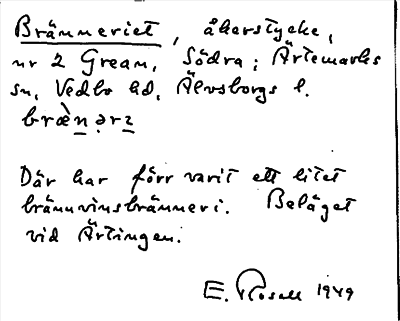 Bränneriet, åkerstycke,
nr 2 Grean, Södra; Ärtemarks
sn, Vedbo hd, Älvsborgs l.
bræ̀nərɪ
Där har förr varit ett litet
brännvinsbränneri. Beläget
vid Ärtingen.
E. Rosell 1949